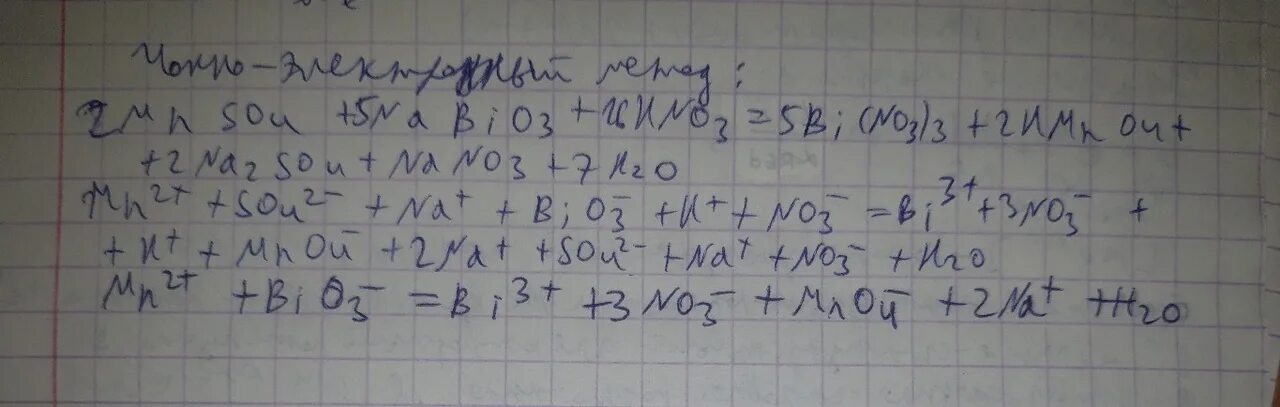 Ионно-электронный метод:
2MnSO4 + 5NaBiO3 + 16HNO3 = 5Bi(NO3)3 + 2HMnO4 +
+ 2Na2SO4 + NaNO3 + 7H2O
Mn²⁺ + SO4²⁻ + Na⁺ + BiO3⁻ + H⁺ + NO3⁻ = Bi³⁺ + 3NO3⁻ +
+ H⁺ + MnO4⁻ + 2Na⁺ + SO4²⁻ + Na⁺ + NO3⁻ + H2O
Mn²⁺ + BiO3⁻ = Bi³⁺ + 3NO3⁻ + MnO4⁻ + 2Na⁺ + H2O